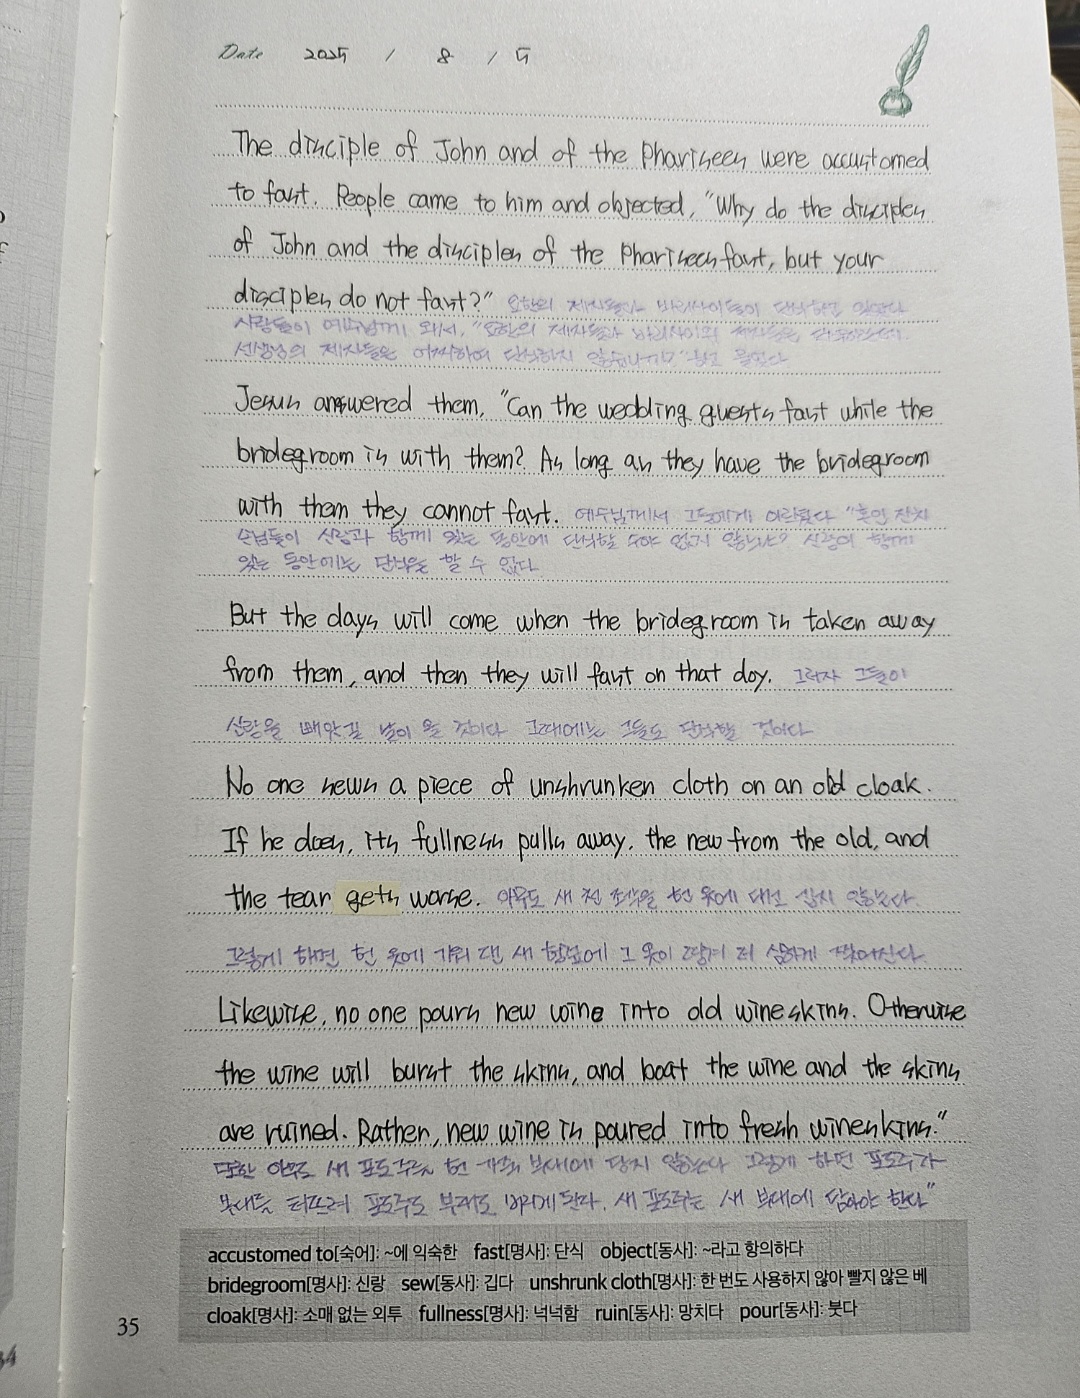 Date 2025 / 8 / 5
The disciple of John and of the Pharisees were accustomed
to fast. People came to him and objected, "Why do the disciples
of John and the disciples of the Pharisees fast, but your
disciples do not fast?" 요한의 제자들과 바리사이들이 단식하고 있었다
사람들이 예수님께 와서, "요한의 제자들과 바리사이의 제자들은 단식하는데,
선생님의 제자들은 어찌하여 단식하지 않습니까?" 하고 물었다
Jesus answered them, "Can the wedding guests fast while the
bridegroom is with them? As long as they have the bridegroom
with them they cannot fast. 예수님께서 그들에게 이르셨다 "혼인 잔치
손님들이 신랑과 함께 있는 동안에 단식할 수야 없지 않느냐? 신랑이 함께
있는 동안에는 단식을 할 수 없다
But the days will come when the bridegroom is taken away
from them, and then they will fast on that day. 그러자 그들이
신랑을 빼앗길 날이 올 것이다 그때에는 그들도 단식할 것이다
No one sews a piece of unshrunken cloth on an old cloak.
If he does, its fullness pulls away, the new from the old, and
the tear gets worse. 아무도 새 천 조각을 헌 옷에 대고 깁지 않는다.
그렇게 하면 헌 옷에 기워 댄 새 헝겊에 그 옷이 땅겨 더 심하게 찢어진다.
Likewise, no one pours new wine into old wineskins. Otherwise
the wine will burst the skins, and boat the wine and the skins
are ruined. Rather, new wine is poured into fresh wineskins."
또한 아무도 새 포도주를 헌 가죽 부대에 담지 않는다 그렇게 하면 포도주가
부대를 터뜨려 포도주도 부대도 버리게 된다. 새 포도주는 새 부대에 담아야 한다"
accustomed to[숙어]: ~에 익숙한 fast[명사]: 단식 object[동사]: ~라고 항의하다
bridegroom[명사]: 신랑 sew[동사]: 깁다 unshrunk cloth[명사]: 한 번도 사용하지 않아 빨지 않은 베
cloak[명사]: 소매 없는 외투 fullness[명사]: 넉넉함 ruin[동사]: 망치다 pour[동사]: 붓다
35